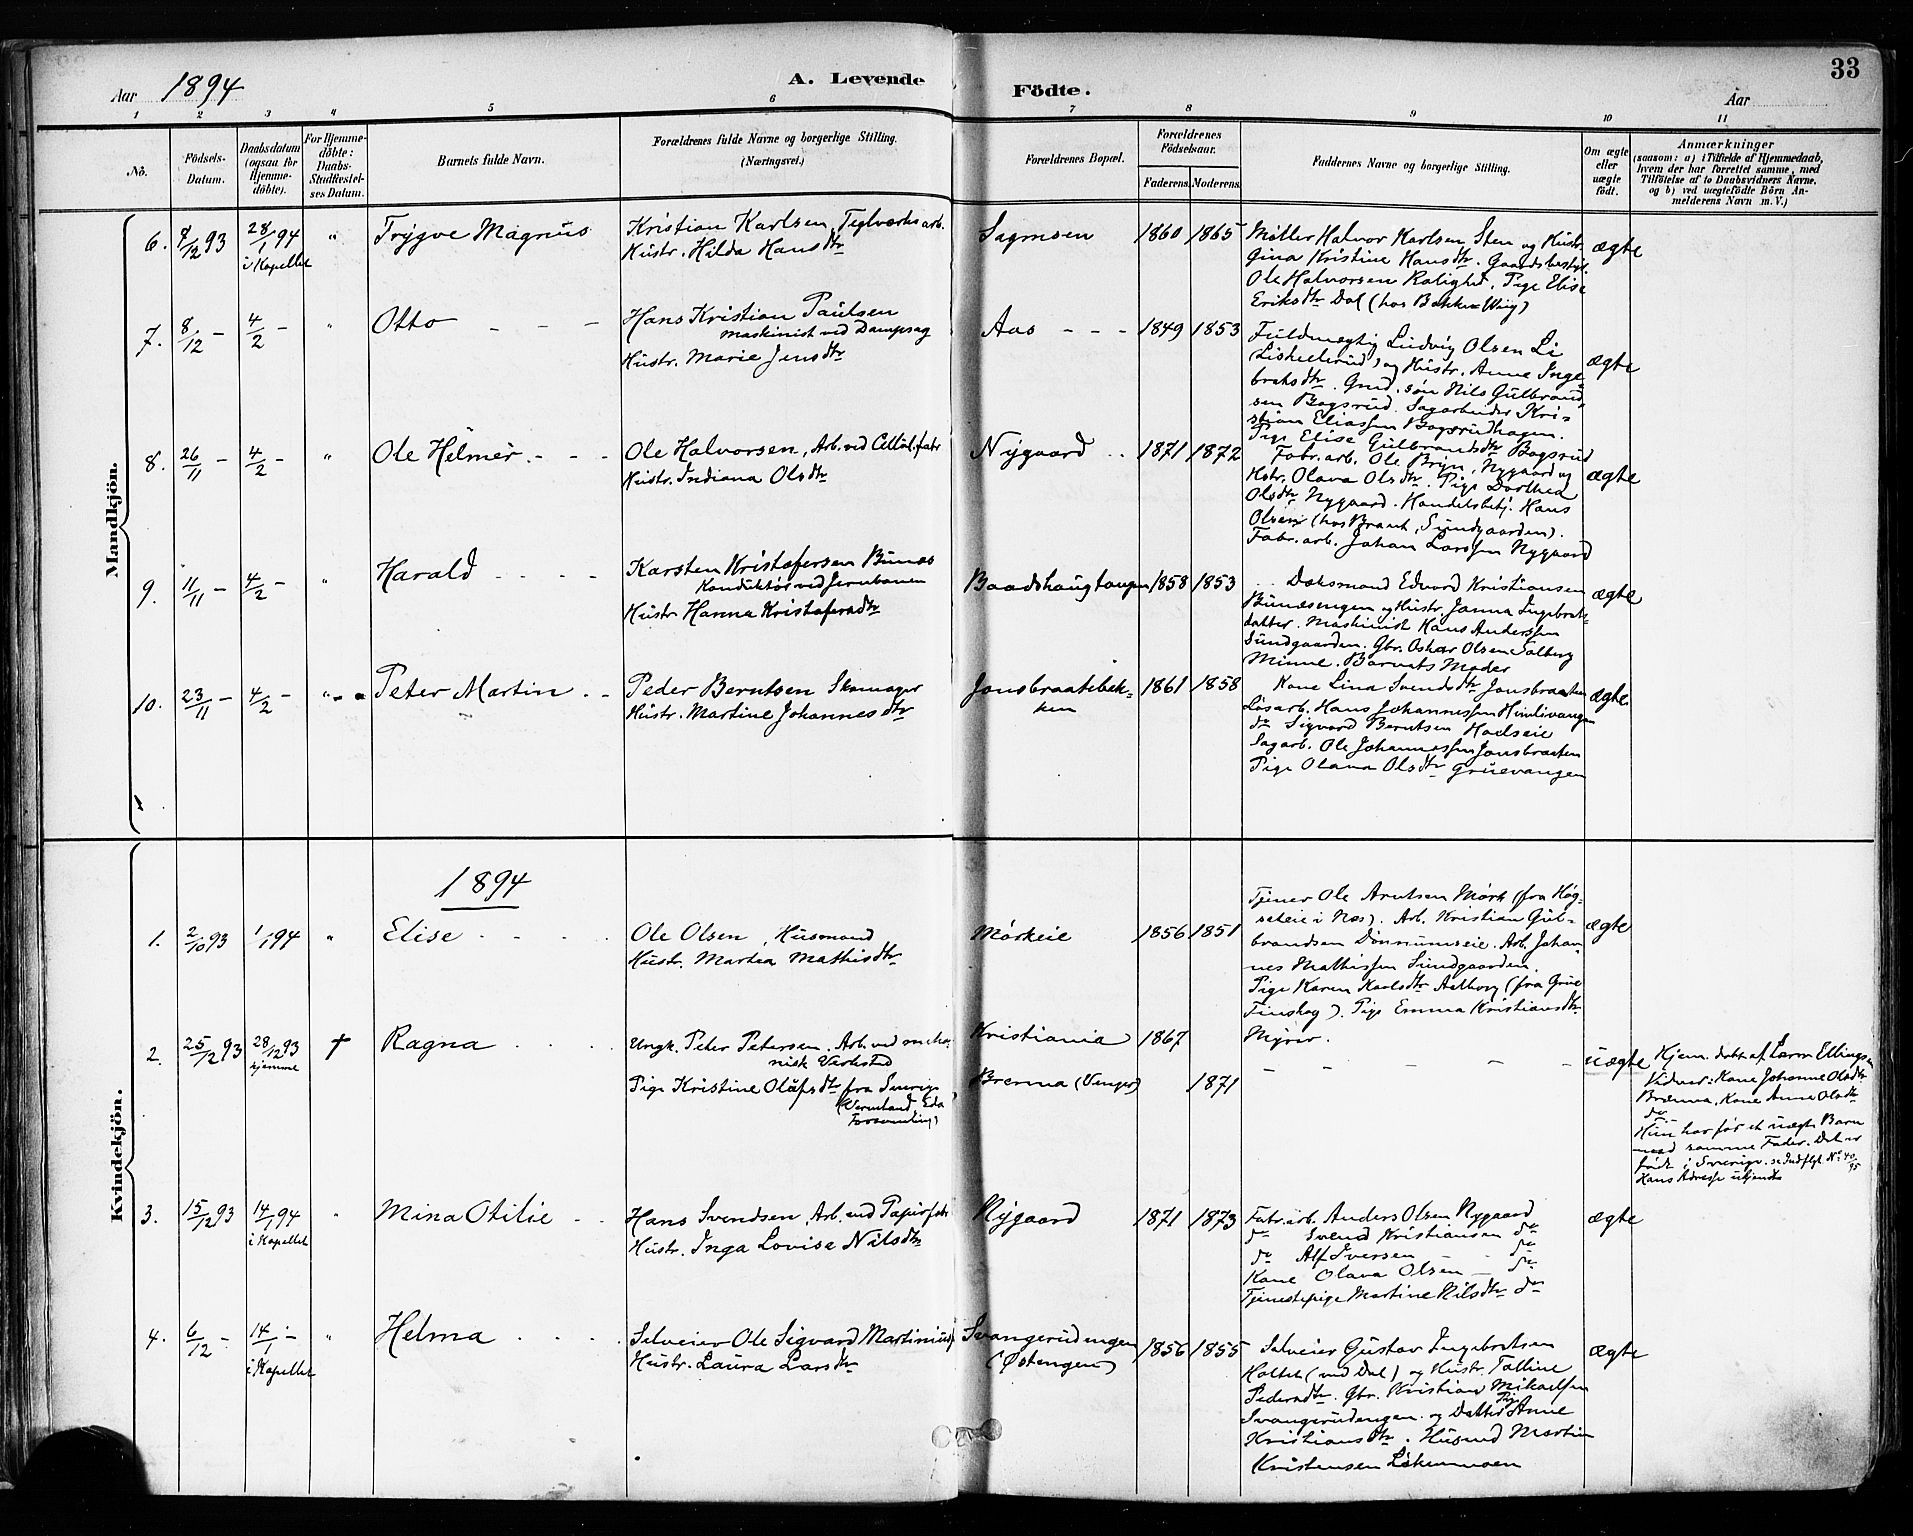 33
Aar 1894
A. Levende
Födte.
Aar
1 2 3 " 5 6 7 8 9 10 11
No.
Födsels-
Datum.
Daabsdatum
(ogsaa for
Hjemme-
döbte).
For Hjemme-
döbte:
Daabs-
Stadfæstel-
ses Datum.
Barnets fulde Navn.
Forældrenes fulde Navne og borgerlige Stilling.
(Næringsvei.)
Forældrenes Bopæl.
Forældrenes
Födselsaar.
Faderens. Moderens.
Faddernes Navne og borgerlige Stilling.
Om ægte
eller
uægte
födt.
Anmærkninger
(saasom: a) i Tilfælde af Hjemmedaab,
hvem der har forrettet samme, med
Tilföielse af to Daabsvidners Navne,
og b) ved uægtefödte Börn An-
melderens Navn m. V.)
Mandkjön.
6. 7/12 93 28/1 94 " Trygve Magnus
i Kapellet
Kristian Karlsen Teglværksarb.
Hustr. Hilda Hansdtr
Sagmoen 1860 1865
Møller Halvor Karlsen Sten og Hustr
Gina Kristine Hansdtr. Gaardsbestyr.
Ole Halvorsen Rolighed. Pige Elise
Eriksdtr Dal (hos Bakken Wiig)
ægte
7. 8/12 - 4/2 - " Otto - - -
Hans Kristian Paulsen
maskinist ved Dampsag
Hustr. Marie Jensdtr
Aas - - - 1849 1853
Fuldmægtig Ludvig Olsen Li
(Liskellerud) og Hustr. Anne Inge-
bretsdtr. Grd. søn Nils Gulbrand-
sen Bogsrud. Sagarbeider Kri-
stian Eliassen Bogsrudhagen.
Pige Elise Gulbrandsdtr Bogsrud
ægte
8. 26/11 4/2 - " Ole Helmer - - -
Ole Halvorsen, Arb. ved Cellul.fabr
Hustr. Indiana Olsdtr
Nygaard . . 1871 1872
Fabr. arb. Ole Bryn, Nygaard og
Hstr. Olava Olsdtr. Pige Dorthea
Olsdtr Nygaard. Handelsbetj. Hans
Olsen (hos Brant, Sundgaarden).
Fabr. arb. Johan Larssen Nygaard
ægte
9. 11/11 - 4/2 - " Harald - - - -
Karsten Kristofersen Bunæs
Konduktør ved Jernbanen
Hustr Hanna Kristofersdtr
Baadshaugtangen 1858 1853
Dalsmand Edvard Kristiansen
Bunæsengen og Hustr. Janna Ingebrets-
datter. Maskinist Hans Anderssen
Sundgaarden. Gbr. Oskar Olsen Solberg
Minne. Barnets Moder
ægte
10. 23/11 - 4/2 - " - - Peter Martin - -
Peder Berntsen Skomager
Hustr. Martine Johannesdtr
Jonsbraatebek-
ken
1861 1858
Kone Lina Svendsdtr Jonsbraaten
Løsarb. Hans Johannessen Himlivangen
do Sigvard Berntsen Hadseie
Sagarb. Ole Johannessen Jonsbraaten
Pige Olava Olsdtr Gruevangen
ægte
Kvindekjön.
1894
1. 2/10 93 1/1 94 " Elise - - - -
Ole Olsen, Husmand
Hustr. Martea Mathisdtr
Mørkeie 1856 1851
Tjener Ole Arntsen Mørk (fra Høg-
seteie i Næs). Arb. Kristian Gul-
brandsen Dønnumseie. Arb. Johan-
nes Mathissen Sundgaarden.
Pige Karen Karlsdtr Aalborg (fra Grue
Finskog). Pige Emma Kristiansdtr
Myrer.
ægte
2. 25/12 93 28/12 93 † Ragna - - - -
hjemme
Ungk. Peter Petersen. Arb. ved mcka-
nisk Verksted
Pige Kristine Olafsdtr fra Sverige
(Vermland, Eda
Forsamling)
Kristiania 1867
Brænna (Vinger) 1871
- - - - -
uægte
Hjem. døbt af Lærer Ellingsen
Vidner: Kone Johanne Olsdtr
Brænna, Kone Anne Olsdtr
do.
Hun har før et uægte Barn
med samme Fader. Det er
født i Sverige. se Indflyt No: 40/95
Hans Adresse ukjendt
3. 15/12 93 14/1 94 " Mina Otilie - -
i Kapellet
Hans Svendsen, Arb. ved Papirfabr
Hustr. Inga Lovise Nilsdtr
Nygaard 1871 1873
Fabr. arb. Anders Olsen Nygaard
do Svend Kristiansen do
do Alf Iversen - - do
Kone Olava Olsen - do
Tjenestepige Martine Nilsdtr do
ægte
4. 6/12 - 14/1 - " Helma - - - -
i Kapellet
Selveier Ole Sigvard Martinius
Hustr. Laura Larsdtr
Svangerudengen
(Østengen)
1856 1855
Selveier Gustav Ingebretsen
Holtet (ved Dal) og Hustr. Talline
Pedersdtr. Gbr. Kristian Mikaelsen
Svangerudengen og Datter Pige Anne
Kristiansdtr. Husmd Martin
Kristensen Løkenmoen
ægte